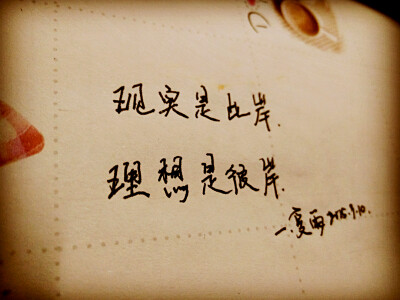 现实是此岸.
理想是彼岸.
—夏雨 2015.9.10.